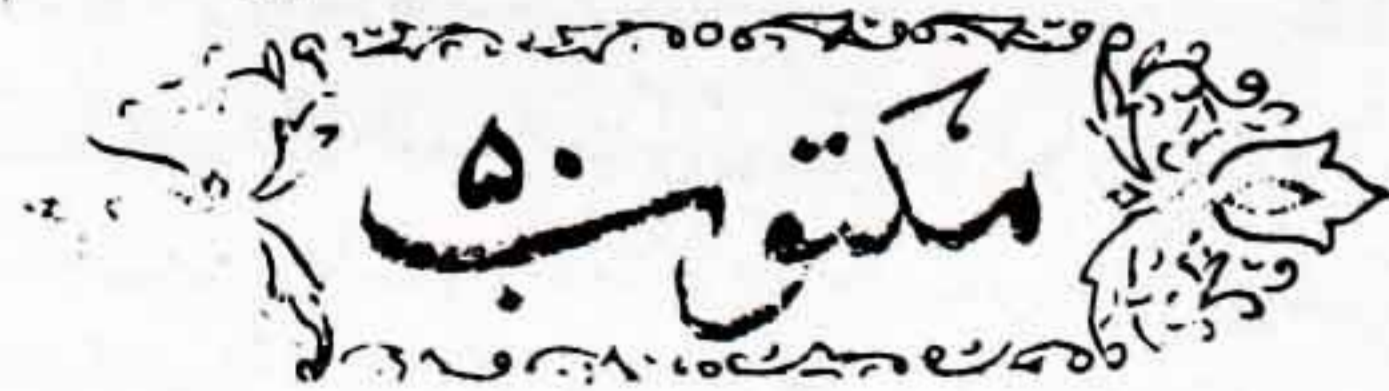 مکتوب ۵۰